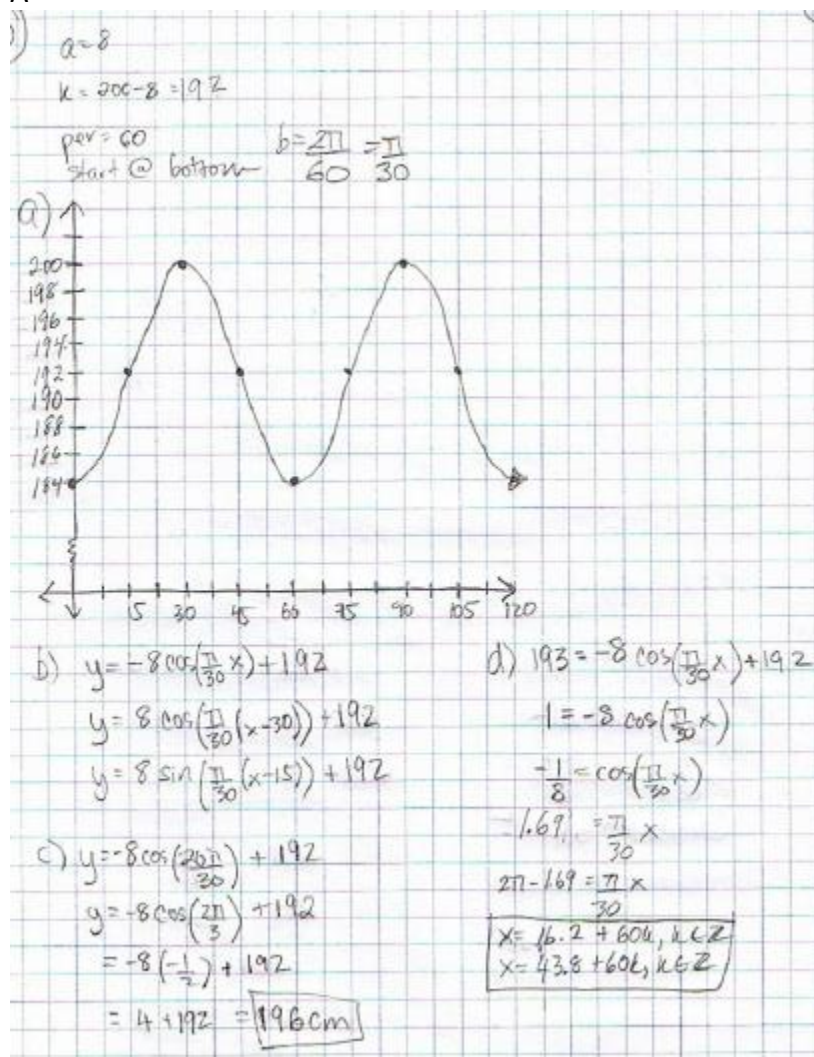 a=8
k = 200-8 = 192
per = 60
start @ bottom
b = 2π/60 = π/30
a)
200
198
196
194
192
190
188
186
184
15 30 45 60 75 90 105 120
b) y = -8cos(π/30 x) + 192
y = 8 cos(π/30 (x-30)) + 192
y = 8 sin(π/30 (x-15)) + 192
c) y = -8cos(20π/30) + 192
y = -8cos(2π/3) + 192
= -8(-1/2) + 192
= 4 + 192 = 196cm
d) 193 = -8 cos(π/30 x) + 192
1 = -8 cos(π/30 x)
-1/8 = cos(π/30 x)
1.69 = π/30 x
2π - 1.69 = π/30 x
x = 16.2 + 60k, k ∈ Z
x = 43.8 + 60k, k ∈ Z